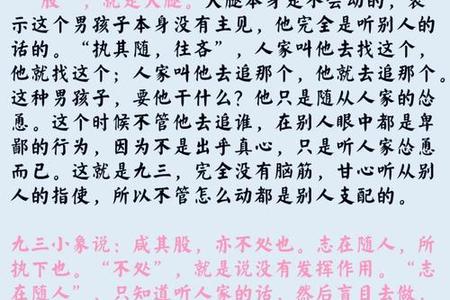 股”，就是大腿。大腿本身是不会动的，表
示这个男孩子本身没有主见，他完全是听别人的
话的。“执其随，往吝”，人家叫他去找这个，
他就找这个；人家叫他去追那个，他就去追那个。
这种男孩子，要他干什么？他只是随从人家的怂
恿。这个时候不管他去追谁，在别人眼中都是卑
鄙的行为，因为不是出乎真心，只是听人家怂恿
而已。这就是九三，完全没有脑筋，甘心听从别
人的指使，所以不管怎么动都是别人支配的。
九三小象说：咸其股，亦不处也。志在随人，所
执下也。“不处”，就是说没有发挥作用。“志
在随人”，只知道听人家的话，然后盲目去做，